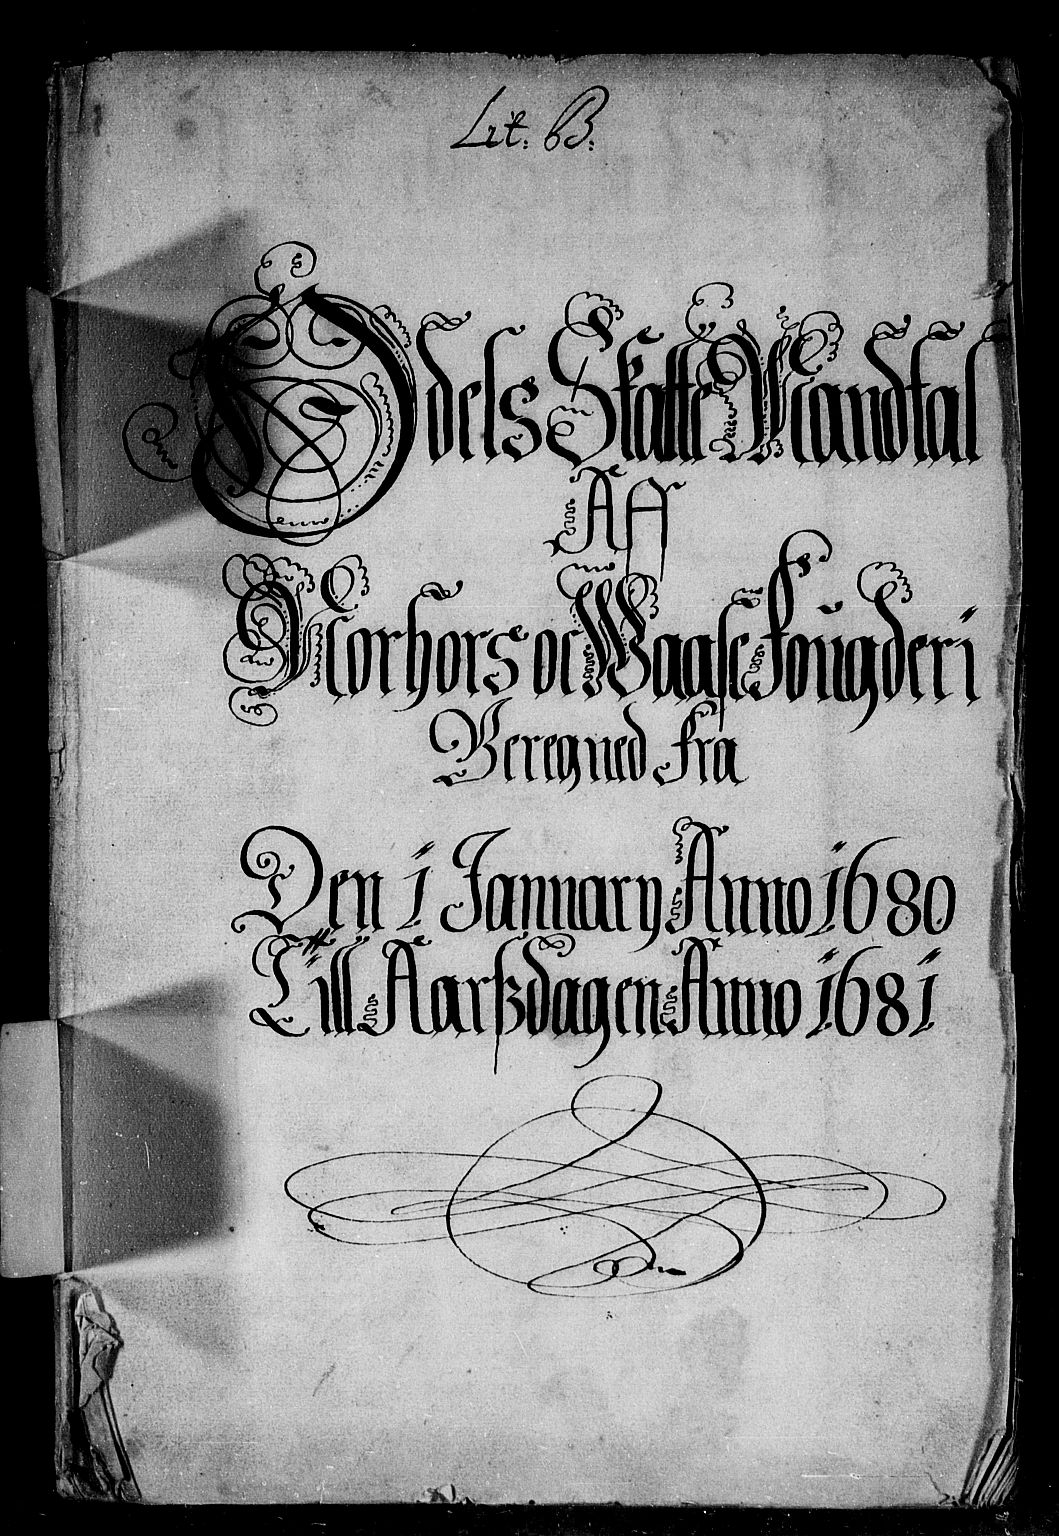 Lit: B:
Odels Skatte Mandtal
AF
Norhors oc Waasse Fougderi
Beregned fra
Den 1 January Anno 1680
Till Aarßdagen Anno 1681